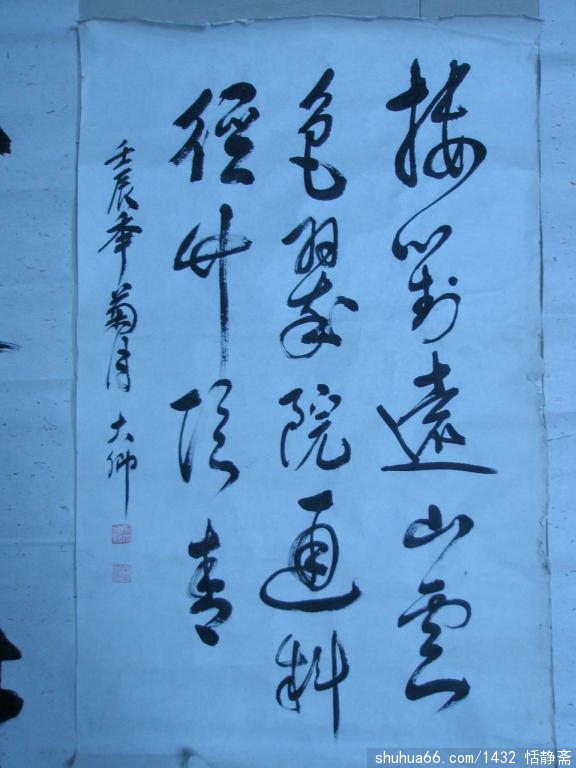 樓對遠山雲
色翠院通斜
徑竹陰青
壬辰年菊月 大
shuhua66.com/1432 恬静斋